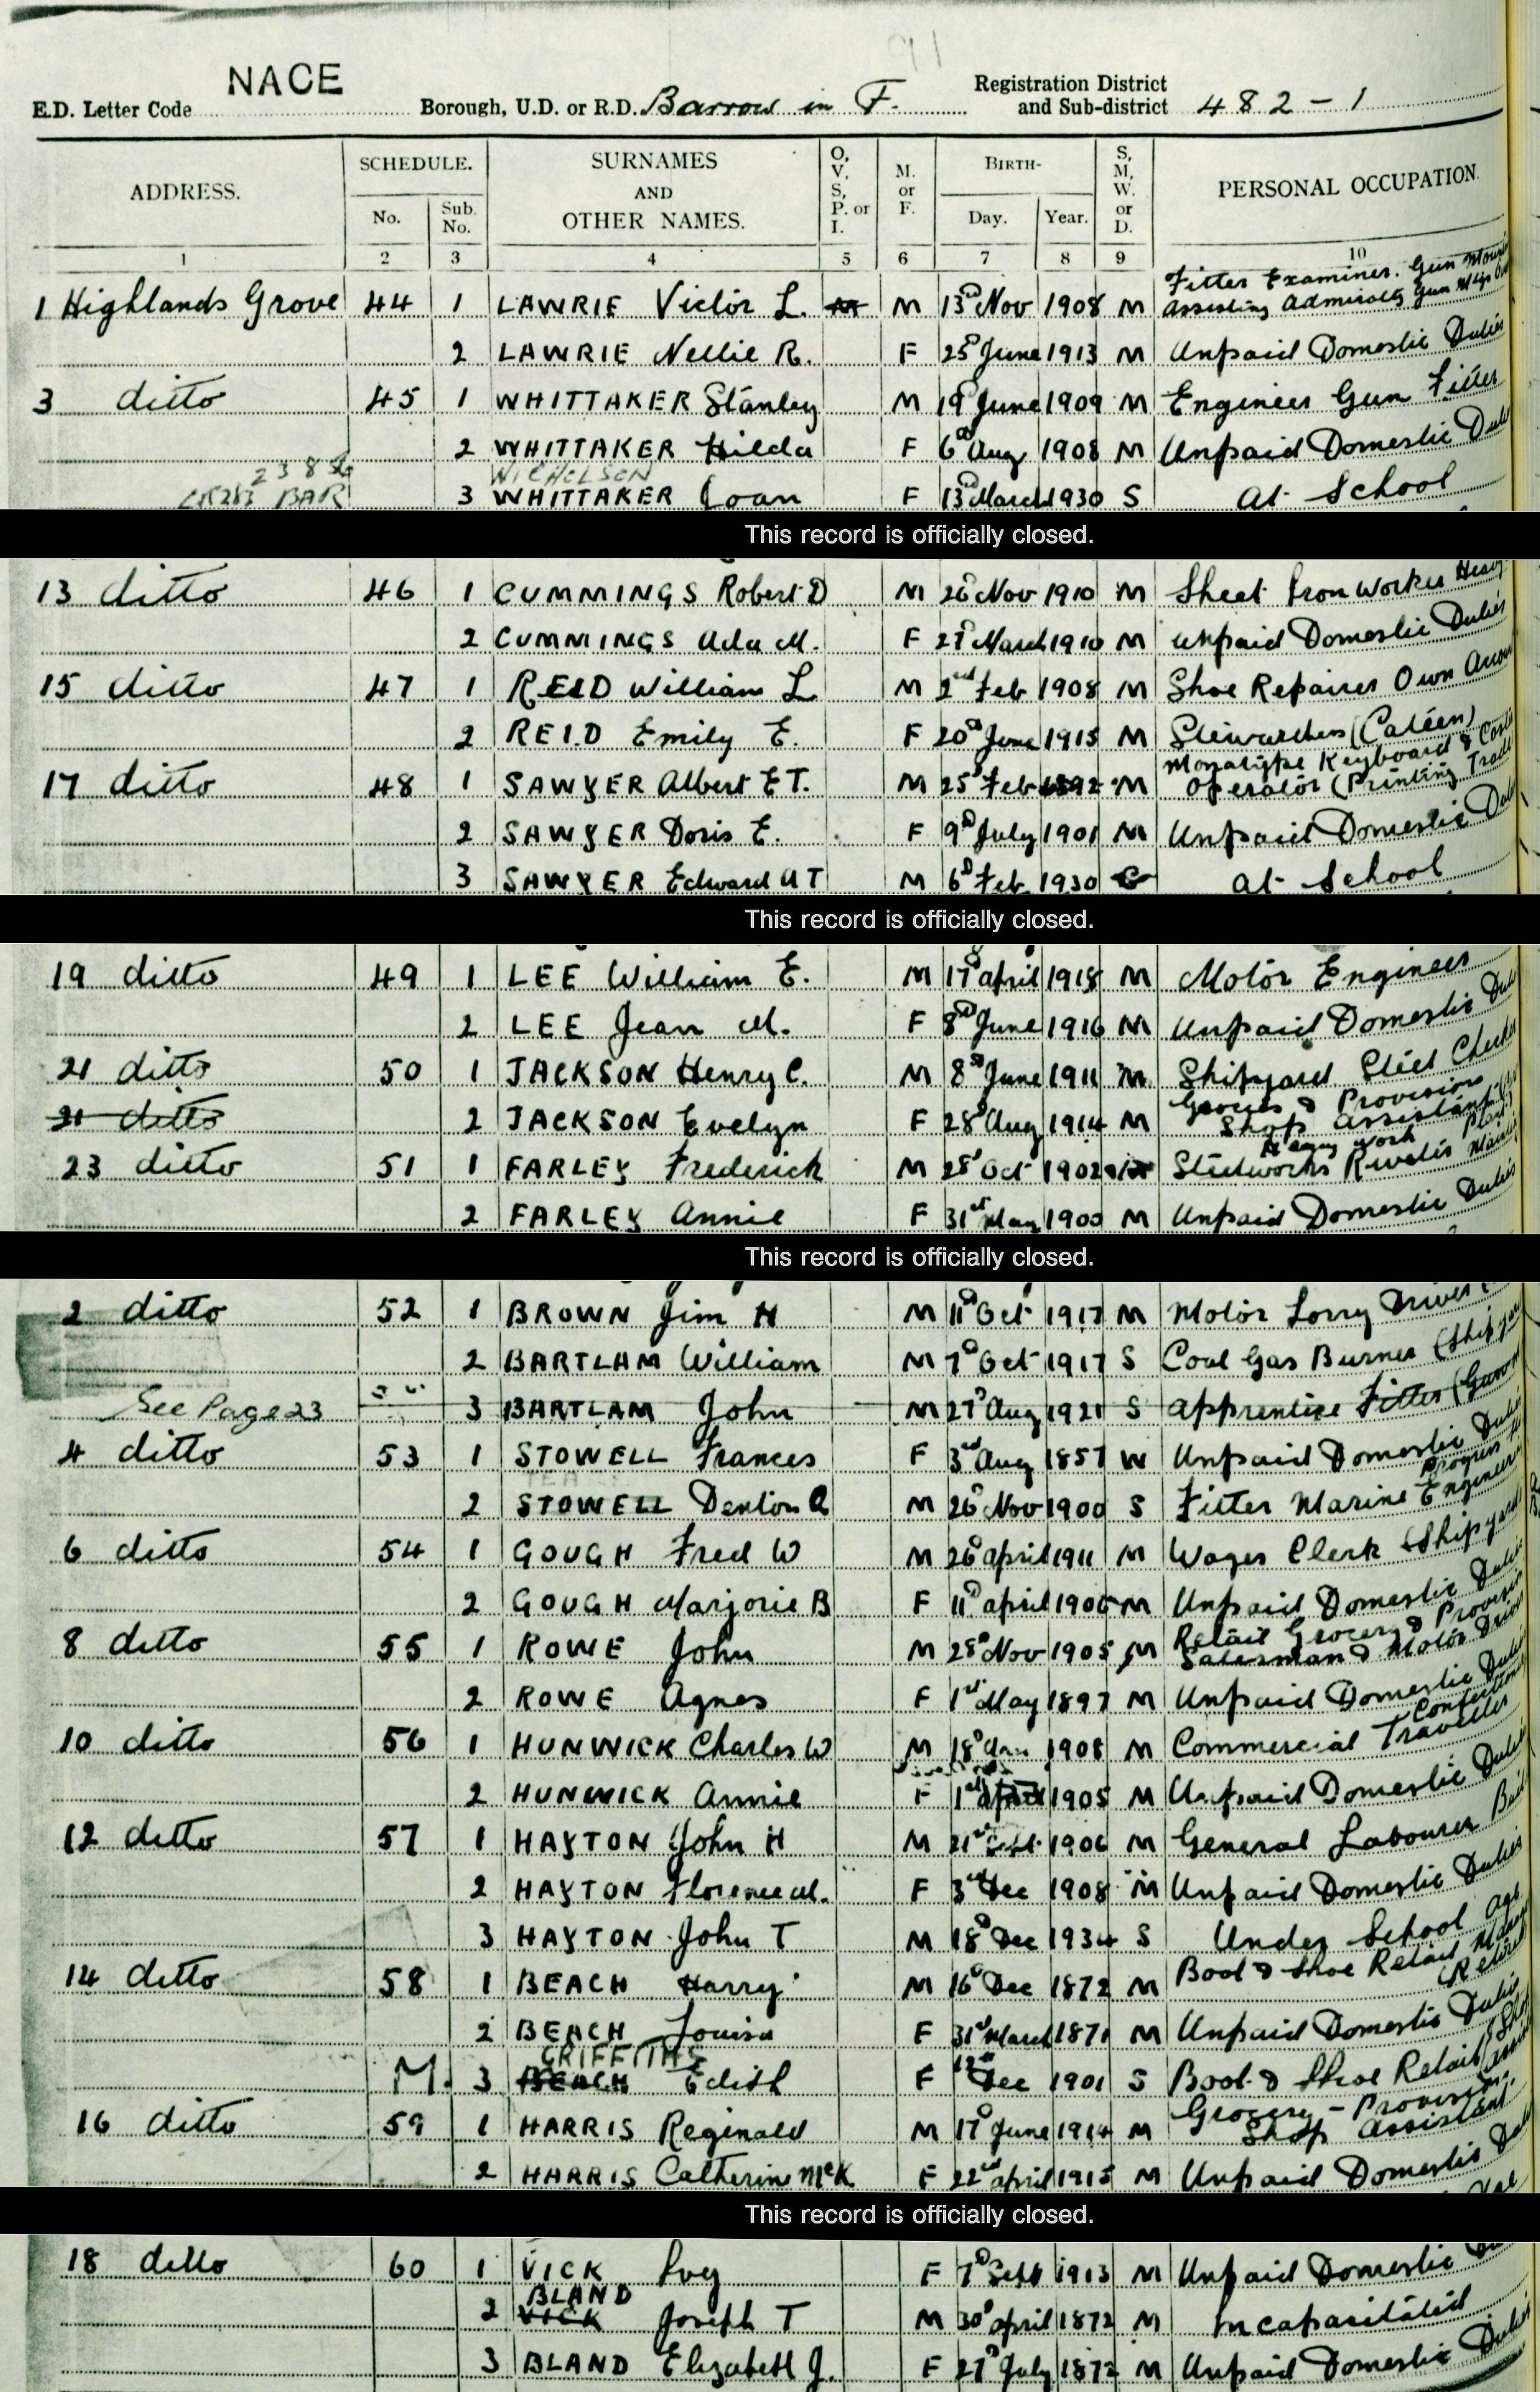 NACE
E.D. Letter Code Borough, U.D. or R.D. Barrow in F. Registration District and Sub-district 482-1
ADDRESS. SCHEDULE. No. Sub. No. SURNAMES AND OTHER NAMES. O, V, S, P. or I. M. or F. BIRTH- Day. Year. S, M, W. or D. PERSONAL OCCUPATION.
1 2 3 4 5 6 7 8 9 10
1 Highlands Grove 44 1 LAWRIE Victor L. M 13th Nov 1908 M Fitter Examiner. Gun Assisting Admiralty Gun
2 LAWRIE Nellie R. F 25th June 1913 M Unpaid Domestic Duties
3 ditto 45 1 WHITTAKER Stanley M 19th June 1909 M Engineer Gun Fitter
2 WHITTAKER Hilda F 6th Aug 1908 M Unpaid Domestic Duti
NICHOLSON
CR283 BAR 3 WHITTAKER Joan F 13th March 1930 S At School
This record is officially closed.
13 ditto 46 1 CUMMINGS Robert D M 26th Nov 1910 M Sheet Iron Worker Heavy
2 CUMMINGS Ada M. F 27th March 1910 M Unpaid Domestic Duties
15 ditto 47 1 REID William L M 2nd Feb 1908 M Shoe Repairer Own Accou
2 REID Emily E. F 20th June 1915 M Stewardess (Cateen)
17 ditto 48 1 SAWYER Albert E T. M 25th Feb 1892 M Monotype Keyboard & Caster Operator (Printing Trade
2 SAWYER Doris E. F 9th July 1901 M Unpaid Domestic Duti
3 SAWYER Edward A T M 6th Feb 1930 At School
This record is officially closed.
19 ditto 49 1 LEE William E. M 17th April 1918 M Motor Engineer
2 LEE Jean M. F 8th June 1916 M Unpaid Domestic Duti
21 ditto 50 1 JACKSON Henry C. M 8th June 1911 M Shipyard Steel Checker
21 ditto 2 JACKSON Evelyn F 28th Aug 1914 M Grocers & Provision Shop Assistant
23 ditto 51 1 FARLEY Frederick M 28th Oct 1902 Heavy Work Steelworks Riveter
2 FARLEY Annie F 31st May 1900 M Unpaid Domestic Duties
This record is officially closed.
2 ditto 52 1 BROWN Jim H M 11th Oct 1917 M Motor Lorry Driver
2 BARTLAM William M 7th Oct 1917 S Coal Gas Burner (Shipyar
See Page 23 3 BARTLAM John M 27th Aug 1921 S Apprentice Fitter (Gun
4 ditto 53 1 STOWELL Frances F 3rd Aug 1857 W Unpaid Domestic Duties
2 STOWELL Denton M 26th Nov 1900 S Fitter Marine Engineer
6 ditto 54 1 GOUGH Fred W M 26th April 1911 M Wages Clerk Shipyard
2 GOUGH Marjorie B F 11th April 1906 M Unpaid Domestic Duties
8 ditto 55 1 ROWE John M 28th Nov 1905 M Retail Grocery & Provision Salesman & Motor Driver
2 ROWE Agnes F 1st May 1897 M Unpaid Domestic Duties
10 ditto 56 1 HUNWICK Charles W M 18th Jan 1908 M Commercial Traveller Confectione
2 HUNWICK Annie F 1st April 1905 M Unpaid Domestic Duties
12 ditto 57 1 HAYTON John H M 21st Sept 1906 M General Labourer Buil
2 HAYTON Florence M. F 3rd Dec 1908 M Unpaid Domestic Duties
3 HAYTON John T M 18th Dec 1934 S Under School Age
14 ditto 58 1 BEACH Harry M 16th Dec 1872 M Boot & Shoe Retail (Retired
2 BEACH Louisa F 31st March 1871 M Unpaid Domestic Duties
GRIFFITHS
M. 3 BEACH Edith F 12th Dec 1901 S Boot & Shoe Retail
16 ditto 59 1 HARRIS Reginald M 17th June 1914 M Grocery - Provision Shop Assistant
2 HARRIS Catherine McK F 22nd April 1915 M Unpaid Domestic Duti
This record is officially closed.
18 ditto 60 1 VICK Ivy F 7th Sept 1913 M Unpaid Domestic
BLAND
2 VICK Joseph T M 30th April 1872 M Incapacitated
3 BLAND Elizabeth J. F 27th July 1872 M Unpaid Domestic Duties